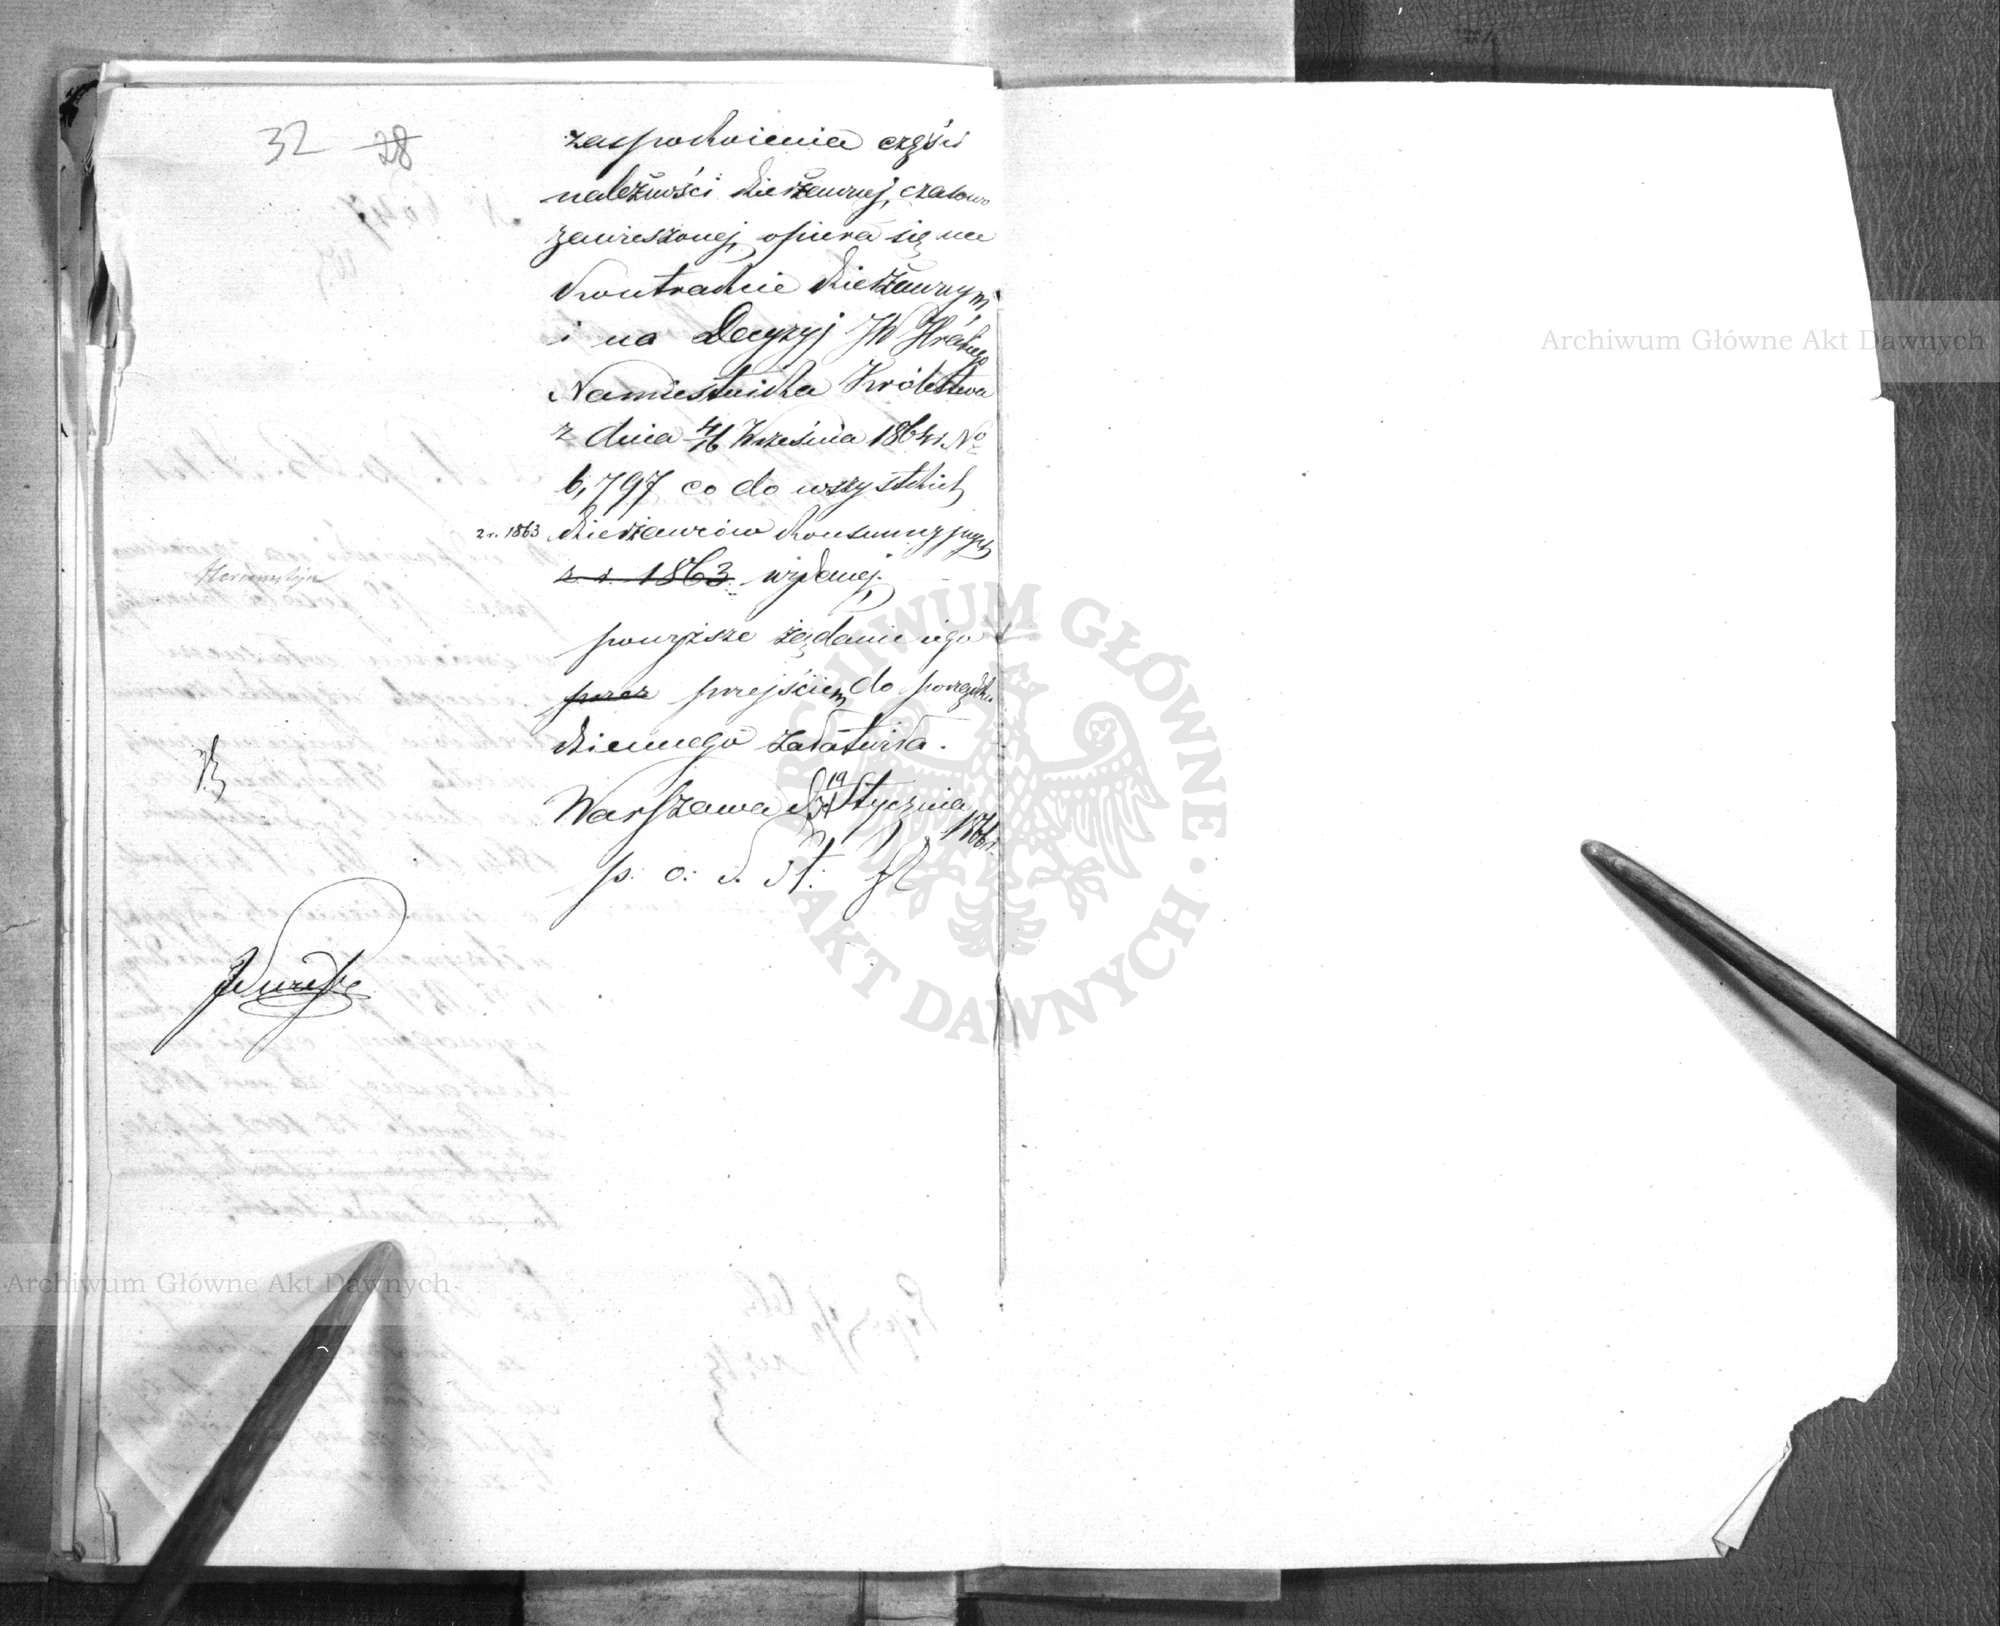 32 28
zaspokoienia części
należności dzierżawnej, czasowo
zawieszonej, opiera się na
Kontrakcie dzierżawnym,
i na Decyzyj JW Hrabiego
Namiestnika Królestwa
z dnia 4/16 Września 1864 r. No
6,797 co do wszystkich
z r. 1863 dzierżawców konsumcyjnych
z r. 1863 wydanej,
powyższe żądanie iego
przez przejściem do porządku
dziennego załatwiła.
Warszawa d 19/31 Stycznia
1866 r.
p. o. d. st.
Archiwum Główne Akt Dawnych
Archiwum Główne Akt Dawnych
ARCHIWUM GŁÓWNE AKT DAWNYCH